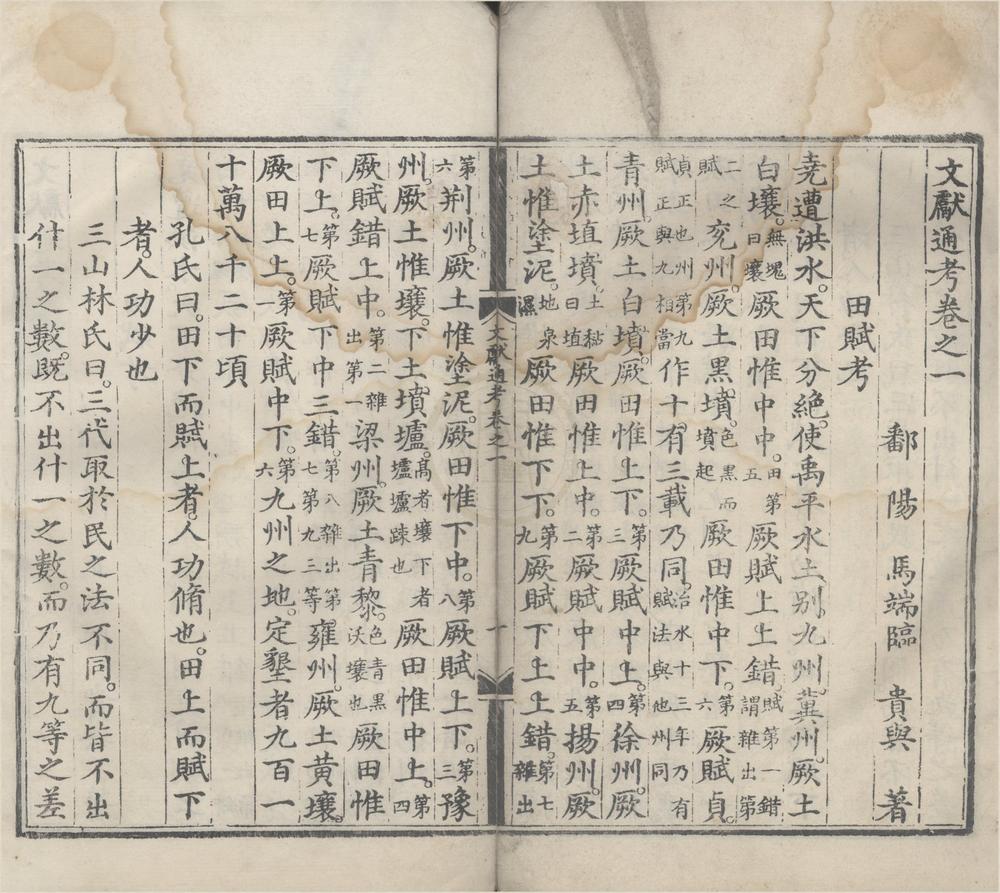 文獻通考卷之一
鄱陽馬端臨貴與著
田賦考
堯遭洪水。天下分絶。使禹平水土。别九州。冀州。厥土
白壤。無塊曰壤厥田惟中中。田第五厥賦上上錯。賦第一錯謂雜出第
二之賦兖州。厥土黑墳。色黑而墳起厥田惟中下。第六厥賦貞。
貞正也州第九賦正與九相當作十有三載乃同。治水十三年乃有賦法與他州同
青州。厥土白墳。厥田惟上下。第三厥賦中上。第四徐州。厥
土赤埴墳。土黏曰埴厥田惟上中。第二厥賦中中。第五揚州。厥
土惟塗泥。地泉濕厥田惟下下。第九厥賦下上上錯。第七雜出
文獻通考卷之一 一
第六荆州。厥土惟塗泥。厥田惟下中。第八厥賦上下。第三豫
州。厥土惟壤。下土墳壚。高者壤下者壚壚踈也厥田惟中上。第四
厥賦錯上中。第二雜出第一梁州。厥土青黎。色青黑沃壤也厥田惟
下上。第七厥賦下中三錯。第八雜出第七第九三等雍州。厥土黄壤。
厥田上上。第一厥賦中下。第六九州之地。定墾者九百一
十萬八千二十頃
孔氏曰。田下而賦上者。人功脩也。田上而賦下
者。人功少也
三山林氏曰。三代取於民之法不同。而皆不出
什一之數。既不出什一之數。而乃有九等之差